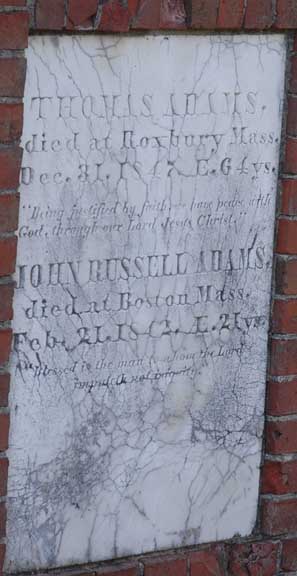 THOMAS ADAMS.
died at Roxbury Mass.
Dec. 31. 1847. Æ. 64 ys.
"Being justified by faith, we have peace with
God, through our Lord Jesus Christ."
JOHN RUSSELL ADAMS.
died at Boston Mass.
Feb. 21. Æ. 21 ys.
"Blessed is the man to whom the Lord
imputeth not iniquity."